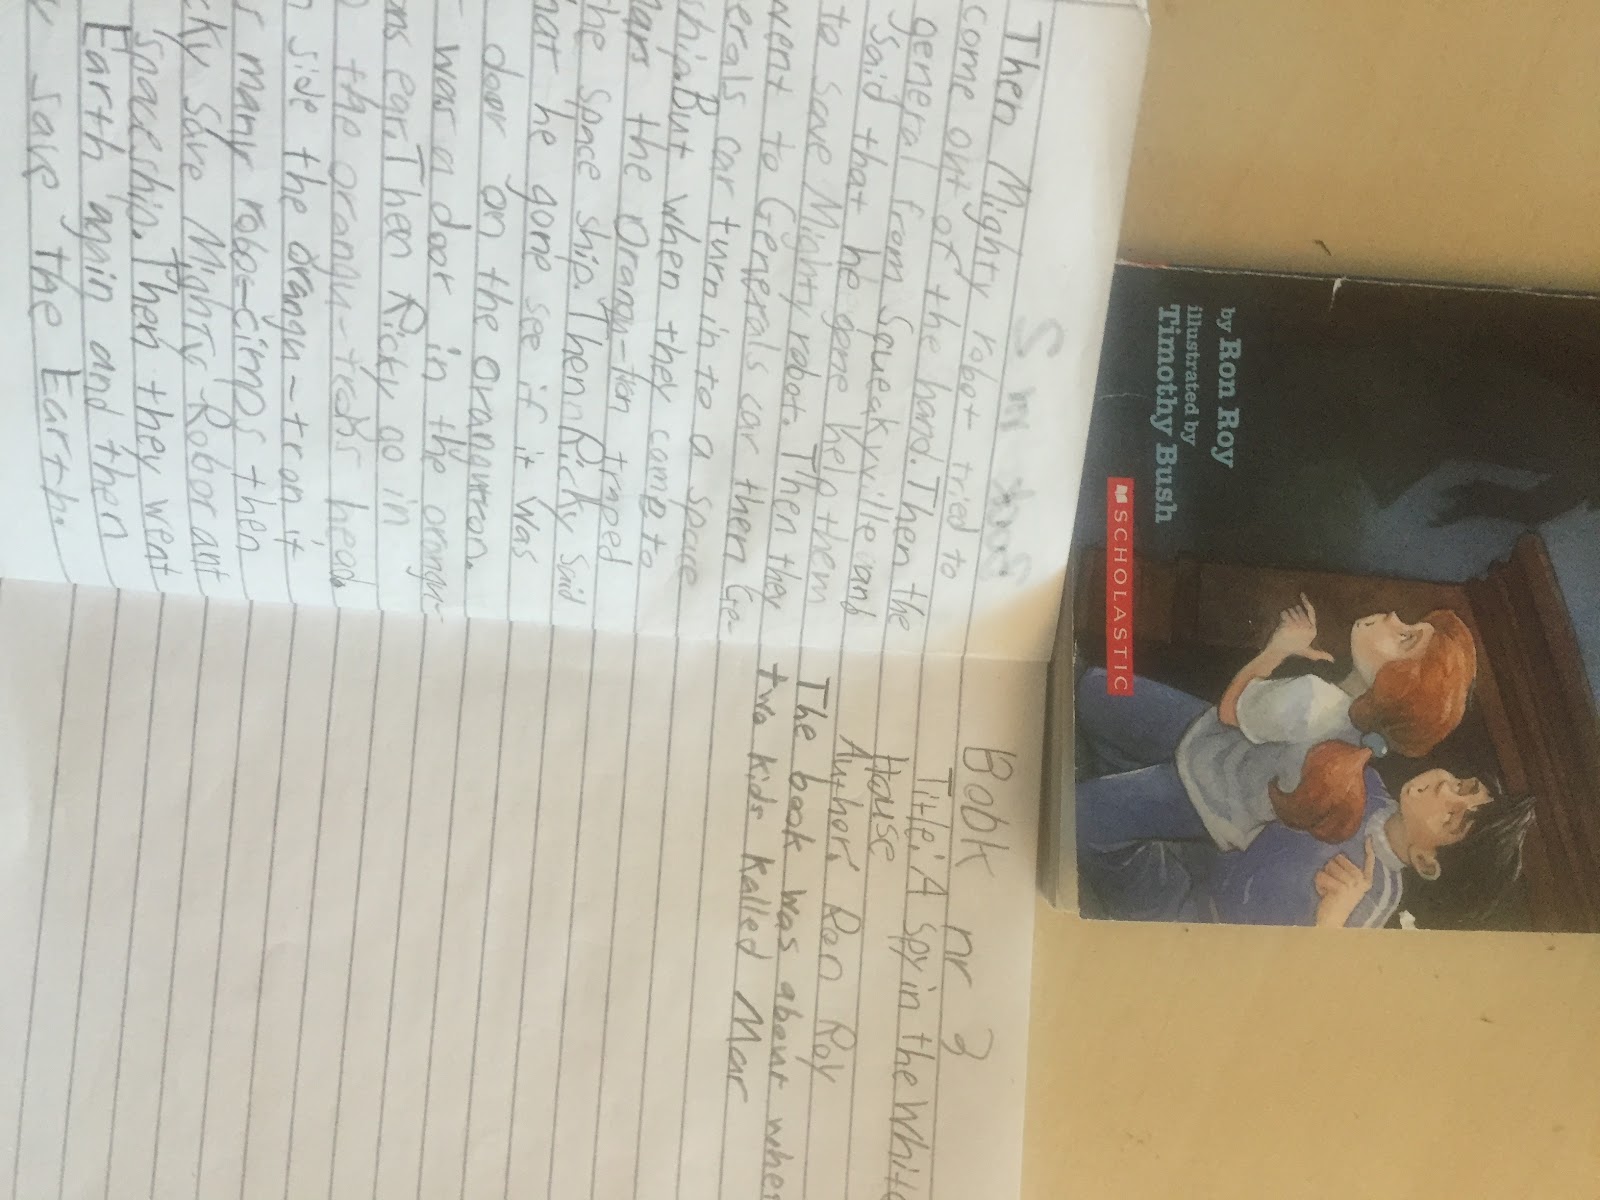 Then Mighty robot tried to
come out of the hand. Then the
general from Squeakyville
said that he gone help them
to save Mighty robot. Then they
went to Generals car then Ge-
erals car turn in to a space
ship. But when they come to
the Orangu-tron traped
the space ship. Then Ricky said
hat he gone see if it was
door on the orangutron.
was a door in the orangu-
ons ear. Then Ricky go in
the orangu-trons head.
side the orangu-tron it
many robo-
cky save Mighty Robot ant
spaceship. Then they went
Earth agin and then
save the Earth.
Bobk nr 3
Title: A spy in the White
House
Author: Ron Roy
The book was about when
two kids kalled Mar
by Ron Roy
illustrated by
Timothy Bush
SCHOLASTIC